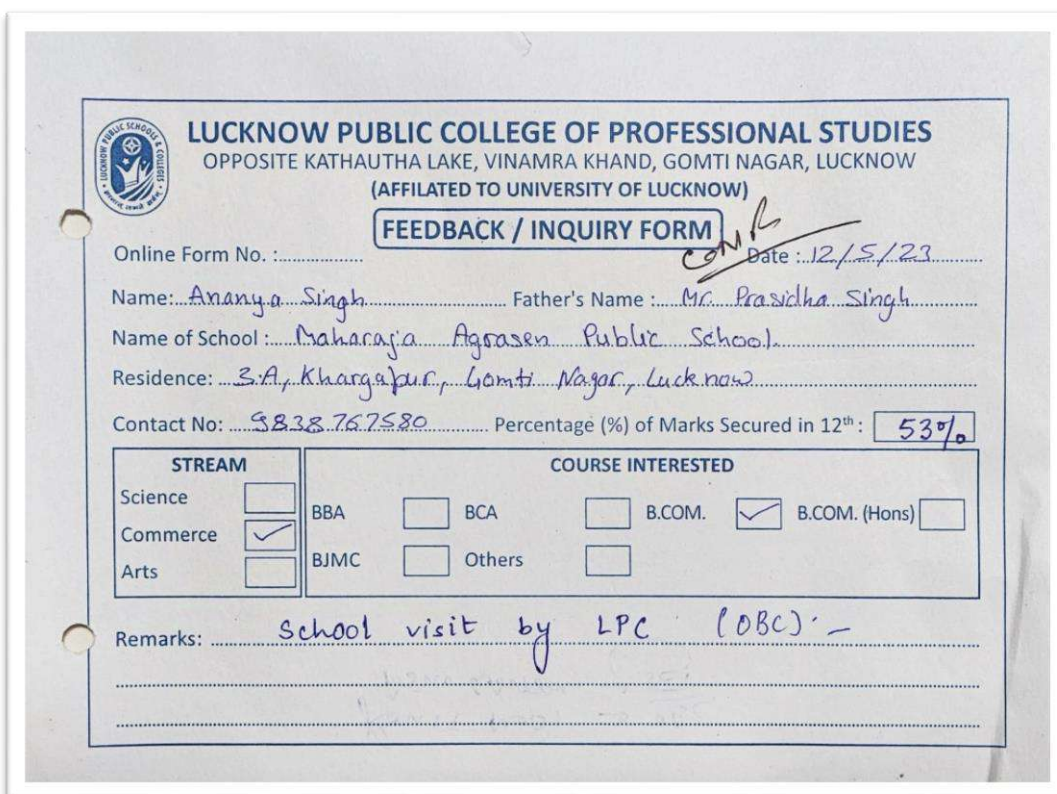 LUCKNOW PUBLIC SCHOOLS & COLLEGES
LUCKNOW PUBLIC COLLEGE OF PROFESSIONAL STUDIES
OPPOSITE KATHAUTHA LAKE, VINAMRA KHAND, GOMTI NAGAR, LUCKNOW
(AFFILATED TO UNIVERSITY OF LUCKNOW)
FEEDBACK / INQUIRY FORM
Online Form No. :.............. Date : 12/5/23
Name: Ananya Singh Father's Name : Mr. Prasidha Singh
Name of School : Maharaja Agrasen Public School.
Residence: 3A, Khargapur, Gomti Nagar, Lucknow
Contact No: 9838767580 Percentage (%) of Marks Secured in 12th : 53%
STREAM COURSE INTERESTED
Science
BBA BCA B.COM. ✓ B.COM. (Hons)
Commerce ✓
BJMC Others
Arts
Remarks: School visit by LPC (OBC). –